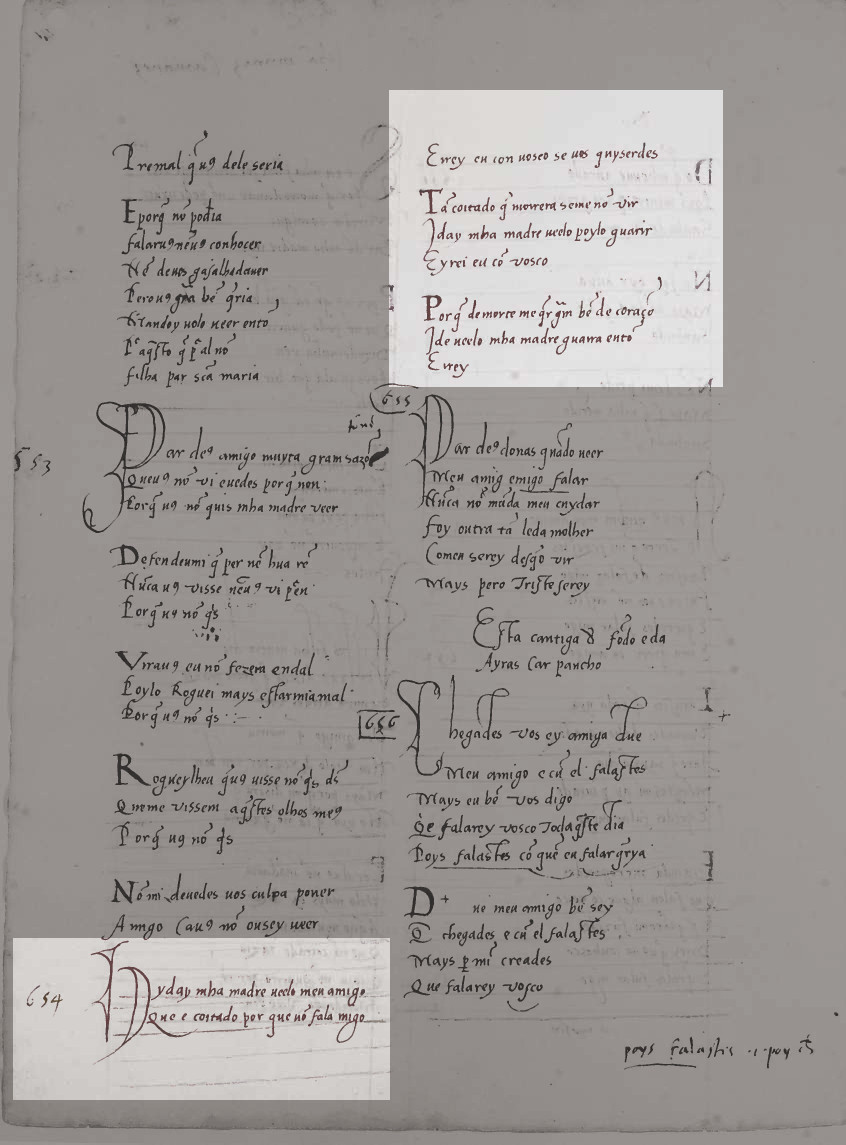 Premal q̃ uꝰ dele seria
E porq̃ nõ podia
falaruꝰ nẽ uꝰ conhoçer
Nẽ de uos gasalhad auer
Pero uꝰ grã bẽ q̃ria
Mandoy uolo ueer entõ
P aq̃sto q̃ p al nõ
filha par sc̃a maria
553
Par deꝰ amigo muyta gram sazõ
Que uꝰ nõ vi e uedes por q̃ non
Porq̃ uꝰ nõ quis mha madre veer
Defendeumi q̃ per nẽ hũa rẽ
Nũca uꝰ visse nẽ uꝰ vi pẽ en
Porq̃ uꝰ nõ q̃s
Virauꝰ eu nõ fezera end al
Poylo Roguei mays estarmia mal
Porq̃ uꝰ nõ q̃s
Rogueylheu q̃ uꝰ uisse nõ q̃s ds̃
Que me vissem aq̃stes olhos meꝰ
Porq̃ uꝰ nõ q̃s
Nõ mi deuedes uos culpa poner
Amigo Ca uꝰ nõ ousey ueer
654
Hyday mha madre ueelo meu amigo
Que e coitado por que nõ fala migo
E irey eu con uosco se uos quyserdes
Tã coitado q̃ morrera se me nõ vir
Iday mha madre ueelo poylo guarir
E yrei eu cõ vosco
Porq̃ de morte me q̃r grã bẽ de coraçõ
Ide ueelo mha madre guarra entõ
E irey
655
Par deꝰ donas quãdo ueer
Meu amig e migo falar
Nũca nõ mũda meu cuydar
foy outra tã leda molher
Com eu serey desq̃o vir
Mays pero Triste serey
Esta cantiga d fõdo e da
Ayras Carpancho
656
Chegades vos ey amiga due
Meu amigo e cũ el falastes
Mays eu bẽ vos digo
Q̃e falarey vosco Todaq̃ste dia
Poys falastes cõ quẽ eu falar q̃rya
D + ue meu amigo bẽ sey
Q chegades e cũ el falastes
Mays p mĩ creades
Que falarey vosco
poys falastis